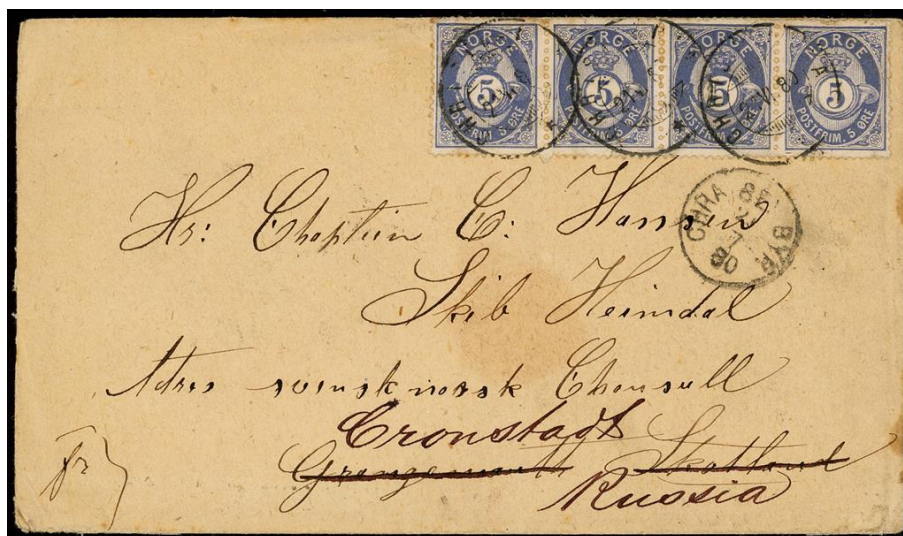 NORGE NORGE NORGE NORGE
5 5 5 5
POSTFRIM. 5 ØRE POSTFRIM. 5 ØRE POSTFRIM. 5 ØRE POSTFRIM. 5 ØRE
Hr: Chaptein C: Hansen
Skib Heimdal
Adres svensk norsk Chonsull
Cronstadt
Grangemouth Skotland
Russia
fr